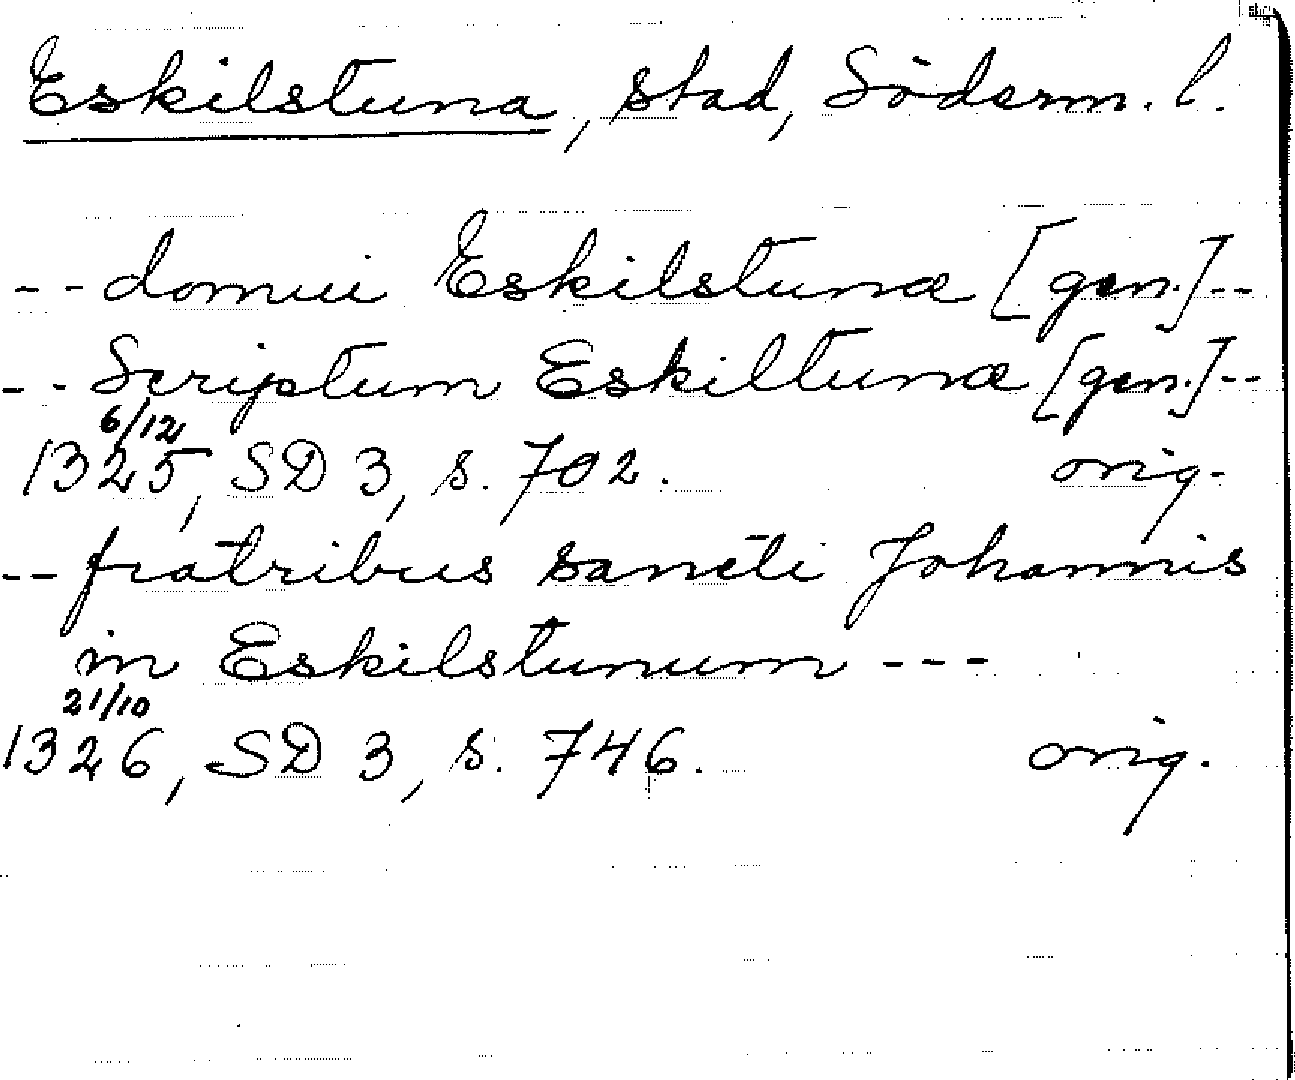 Eskilstuna, stad, Söderm. l.
-- domui Eskilstunæ [gen.] --
-- Scriptum Eskiltunæ [gen.] --
6/12
1325, SD 3, s. 702. orig.
-- fratribus sancti Johannis
in Eskilstunum ---
21/10
1326, SD 3, s. 746. orig.